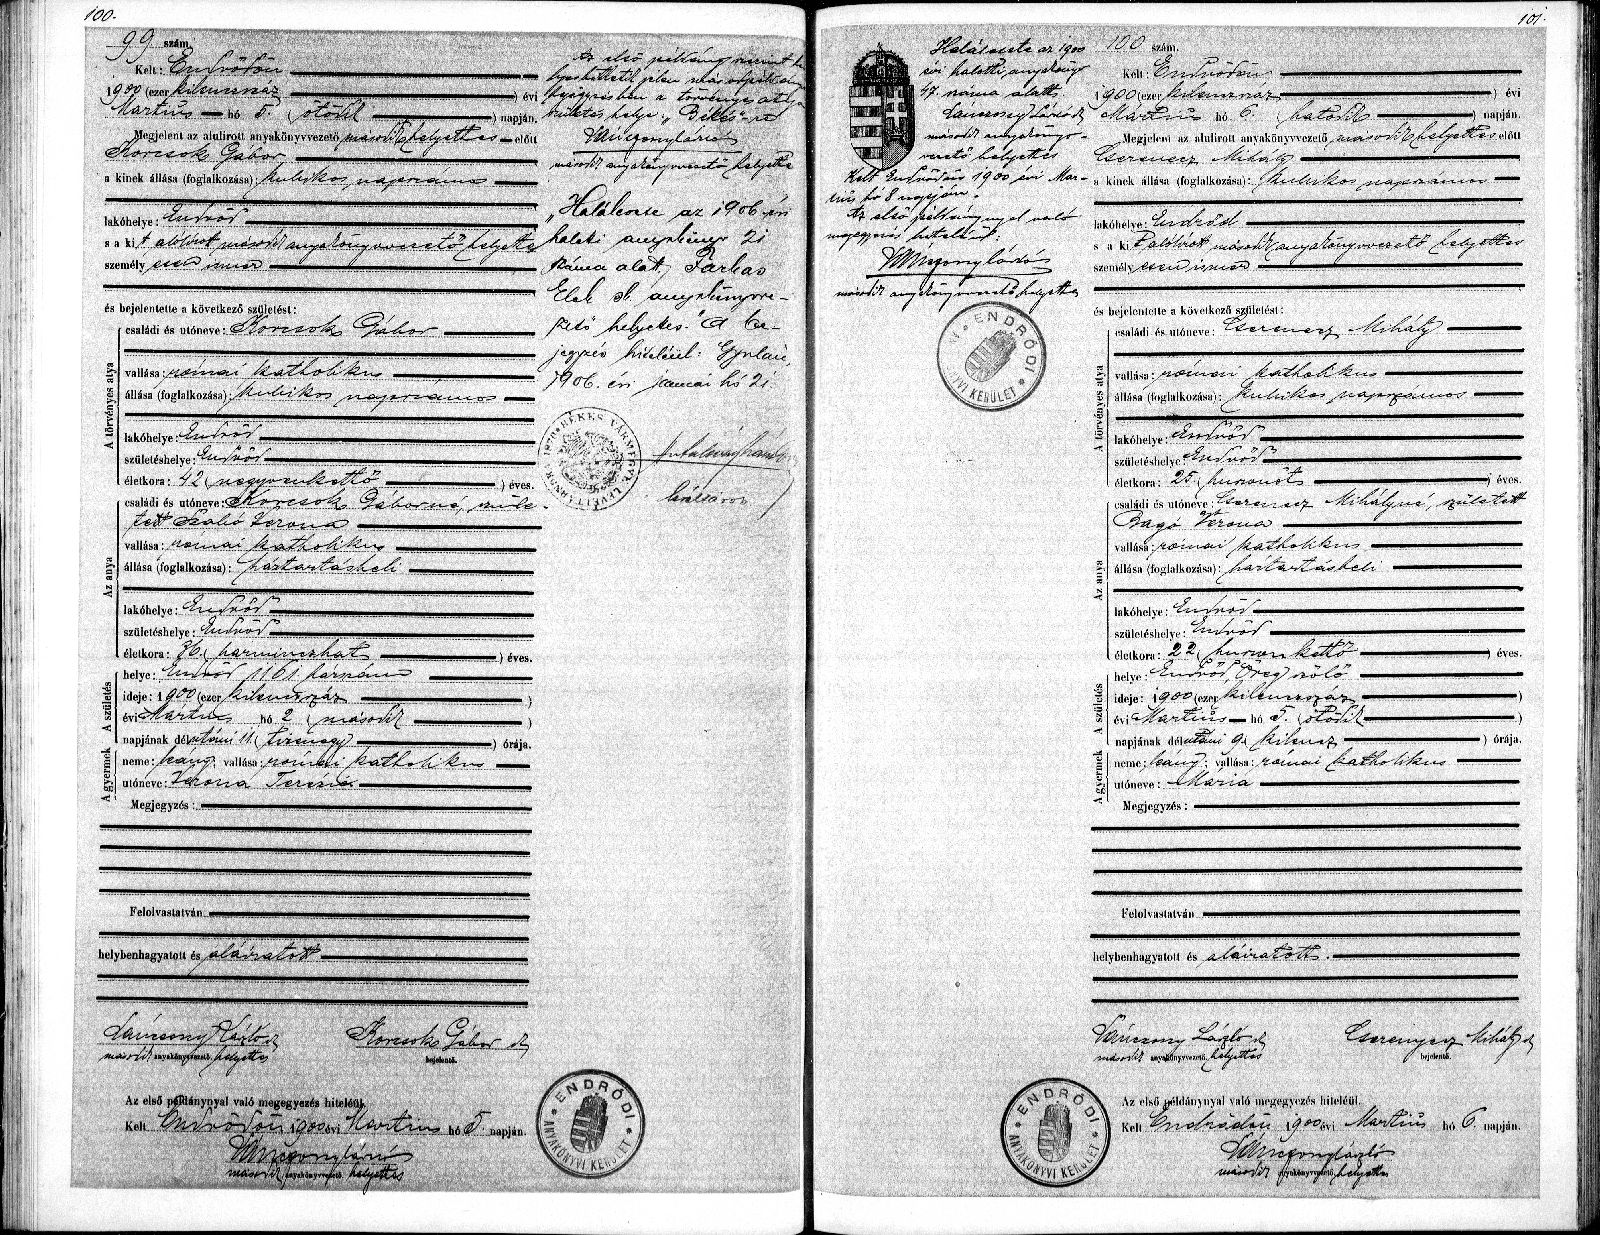 100.
99 szám.
Kelt: Endrődön
1900 (ezer kilenczszáz) évi
Martius hó 5. (ötödik) napján.
Megjelent az alulirott anyakönyvvezető második helyettes előtt
Korcsok Gábor,
a kinek állása (foglalkozása): kubikos napszámos
lakóhelye: Endrőd
s a kit alólirott második anyakönyvvezető helyettes
személyesen ismer
és bejelentette a következő születést:
A törvényes atya
családi és utóneve: Korcsok Gábor
vallása: római katholikus
állása (foglalkozása): kubikos napszámos
lakóhelye: Endrőd
születéshelye: Endrőd
életkora: 42 (negyvenkettő) éves.
Az anya
családi és utóneve: Korcsok Gáborné, szüle-
tett Szabó Verona
vallása: római katholikus
állása (foglalkozása): háztartásbeli
lakóhelye: Endrőd
születéshelye: Endrőd
életkora: 36. (harminczhat) éves.
A születés
helye: Endrőd 1161 házszám
ideje: 1900 (ezer kilenczszáz)
évi Martius hó 2 (második)
napjának délutáni 11. (tizenegy) órája.
A gyermek
neme: leány; vallása: római katholikus
utóneve: Verona Terézia
Megjegyzés:
Felolvastatván
helybenhagyatott és aláiratott
Lánczony László
Korcsok Gábor
második anyakönyvvezető helyettes
bejelentő.
Az első példánynyal való megegyezés hiteléül.
Kelt Endrődön 1900 évi Martius hó 5. napján.
Lánczony László
második anyakönyvvezető helyettes
ENDRŐDI ANYAKÖNYVI KERÜLET
Az első példány szerint
a törvényes atya
születés helye „Békés"
Lánczony László
második anyakönyvvezető helyettes
„Halálesete az 1906. évi
halotti anyakönyv 21
száma alatt. Farkas
Elek s. anyakönyvve-
zető helyettes." A be-
jegyzés hiteléül: Gyulán,
1906. évi január hó 21.
BÉKÉS VÁRMEGYE LEVÉLTÁRNOK
levéltáros
101.
Halálesete az 1900
évi halotti anyakönyv
47. száma alatt.
Lánczony László
második anyakönyv-
vezető helyettes
Kelt Endrődön 1900 évi Mar-
tius hó 8 napján.
Az első példánynyal való
megegyezés hiteléül.
Lánczony László
második anyakönyvvezető helyettes
ENDRŐDI ANYAKÖNYVI KERÜLET
100 szám.
Kelt: Endrődön
1900 (ezer kilenczszáz) évi
Martius hó 6. (hatodik) napján.
Megjelent az alulirott anyakönyvvezető második helyettes előtt
Cserenyecz Mihály
a kinek állása (foglalkozása): kubikos napszámos
lakóhelye: Endrőd
s a kit alólirott második anyakönyvvezető helyettes
személyesen ismer
és bejelentette a következő születést:
A törvényes atya
családi és utóneve: Cserenyecz Mihály
vallása: római katholikus
állása (foglalkozása): kubikos napszámos
lakóhelye: Endrőd
születéshelye: Endrőd
életkora: 25. (huszonöt) éves.
Az anya
családi és utóneve: Cserenyecz Mihályné, született
Bagó Verona
vallása: római katholikus
állása (foglalkozása): háztartásbeli
lakóhelye: Endrőd
születéshelye: Endrőd
életkora: 22 (huszonkettő) éves.
A születés
helye: Endrőd, (Öreg) szőlő
ideje: 1900 (ezer kilenczszáz)
évi Martius hó 5. (ötödik)
napjának délutáni 9. (kilencz) órája.
A gyermek
neme: leány; vallása: római katholikus
utóneve: Mária
Megjegyzés:
Felolvastatván
helybenhagyatott és aláiratott.
Lánczony László
Cserenyecz Mihály
második anyakönyvvezető helyettes
bejelentő.
Az első példánynyal való megegyezés hiteléül.
Kelt Endrődön 1900 évi Martius hó 6. napján.
Lánczony László
második anyakönyvvezető helyettes
ENDRŐDI ANYAKÖNYVI KERÜLET